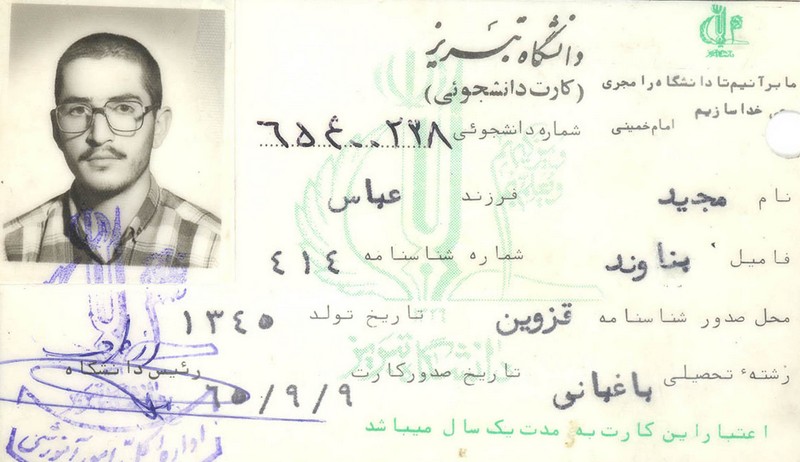 دانشگاه تبریز
ما بر آنیم تا دانشگاه را مجری
خدا سازیم
امام خمینی
(کارت دانشجوئی)
شماره دانشجوئی ۶۵۴۰۰۲۳۸
نام مجید فرزند عباس
فامیل بناوند شماره شناسنامه ۴۱۴
محل صدور شناسنامه قزوین تاریخ تولد ۱۳۴۵
رشته‌ٔ تحصیلی باغبانی تاریخ صدور کارت ۶۵/۹/۹ رئیس دانشگاه
اعتبار این کارت به مدت یک سال میباشد
دانشگاه تبریز